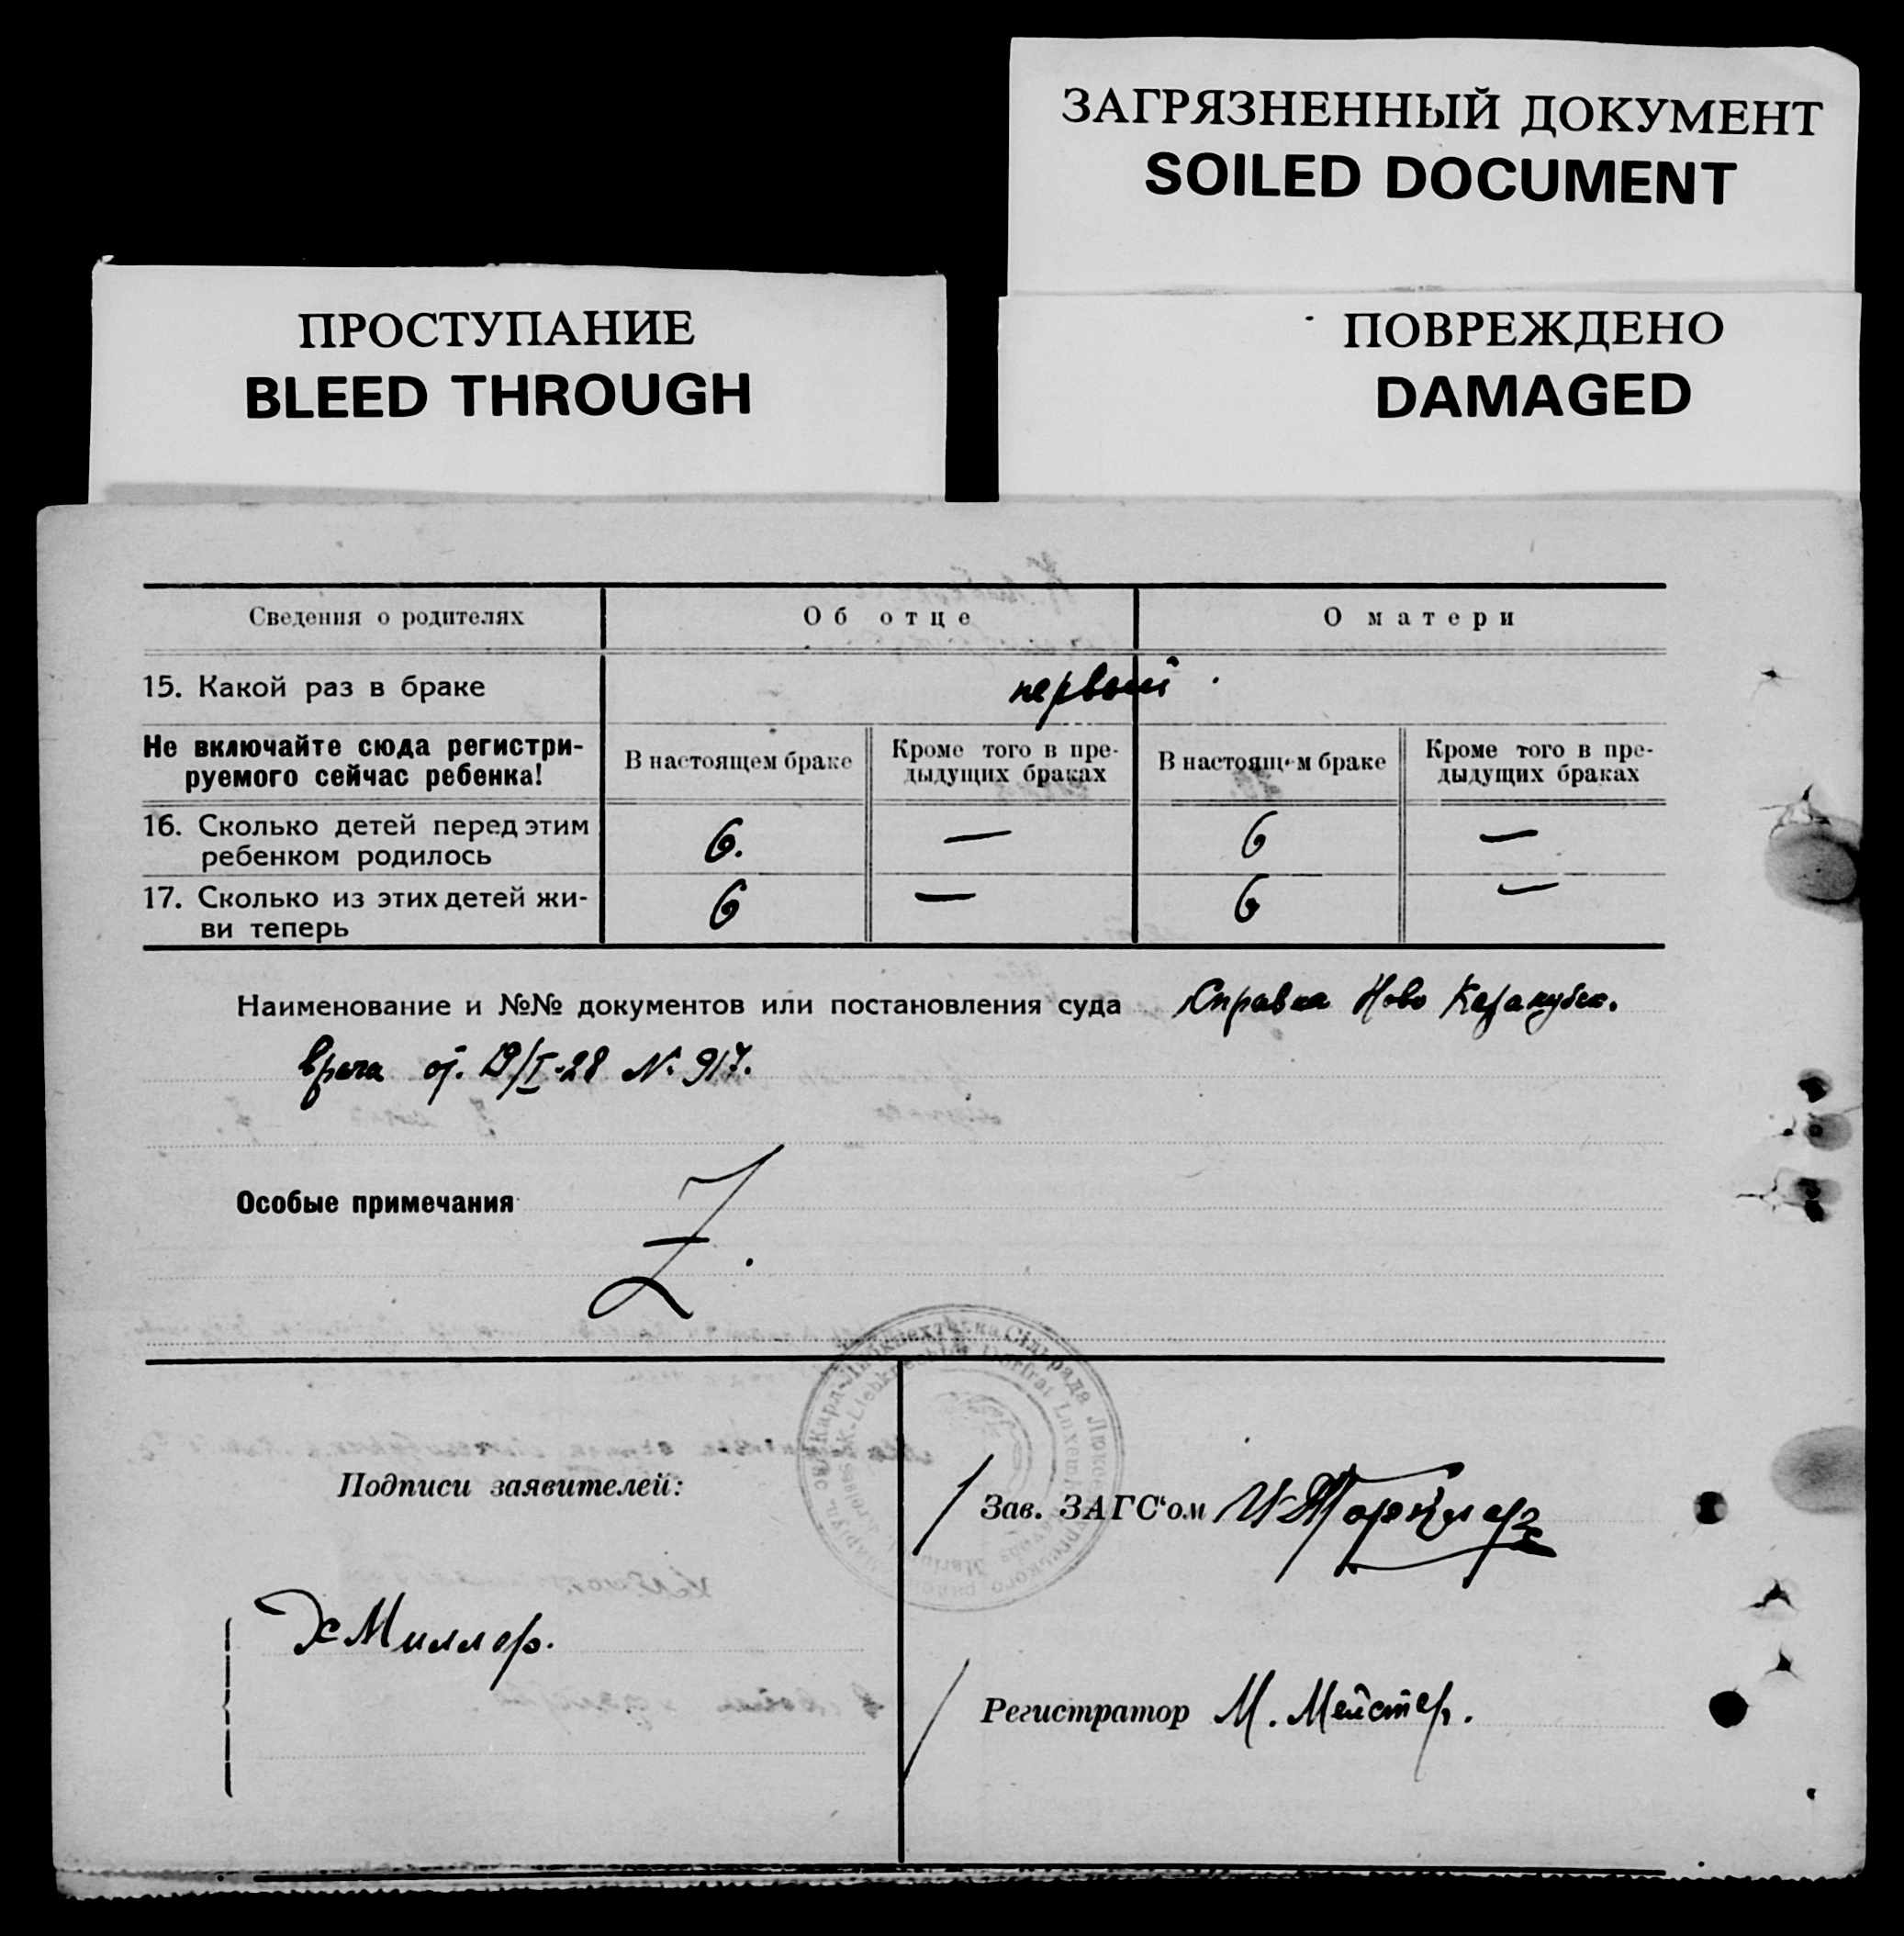 ЗАГРЯЗНЕННЫЙ ДОКУМЕНТ
SOILED DOCUMENT
ПРОСТУПАНИЕ
BLEED THROUGH
ПОВРЕЖДЕНО
DAMAGED
Сведения о родителях Об отце О матери
15. Какой раз в браке первый.
Не включайте сюда регистри-
руемого сейчас ребенка!
В настоящем браке
Кроме того в пре-
дыдущих браках
В настоящем браке
Кроме того в пре-
дыдущих браках
16. Сколько детей перед этим
ребенком родилось 6. — 6 —
17. Сколько из этих детей жи-
ви теперь 6 — 6 —
Наименование и №№ документов или постановления суда Справка Ново Каракубск.
врача от. 19/I-28 N. 917.
Особые примечания Z.
Подписи заявителей:
Зав. ЗАГС'ом
Миллер.
Регистратор М. Мейстер.